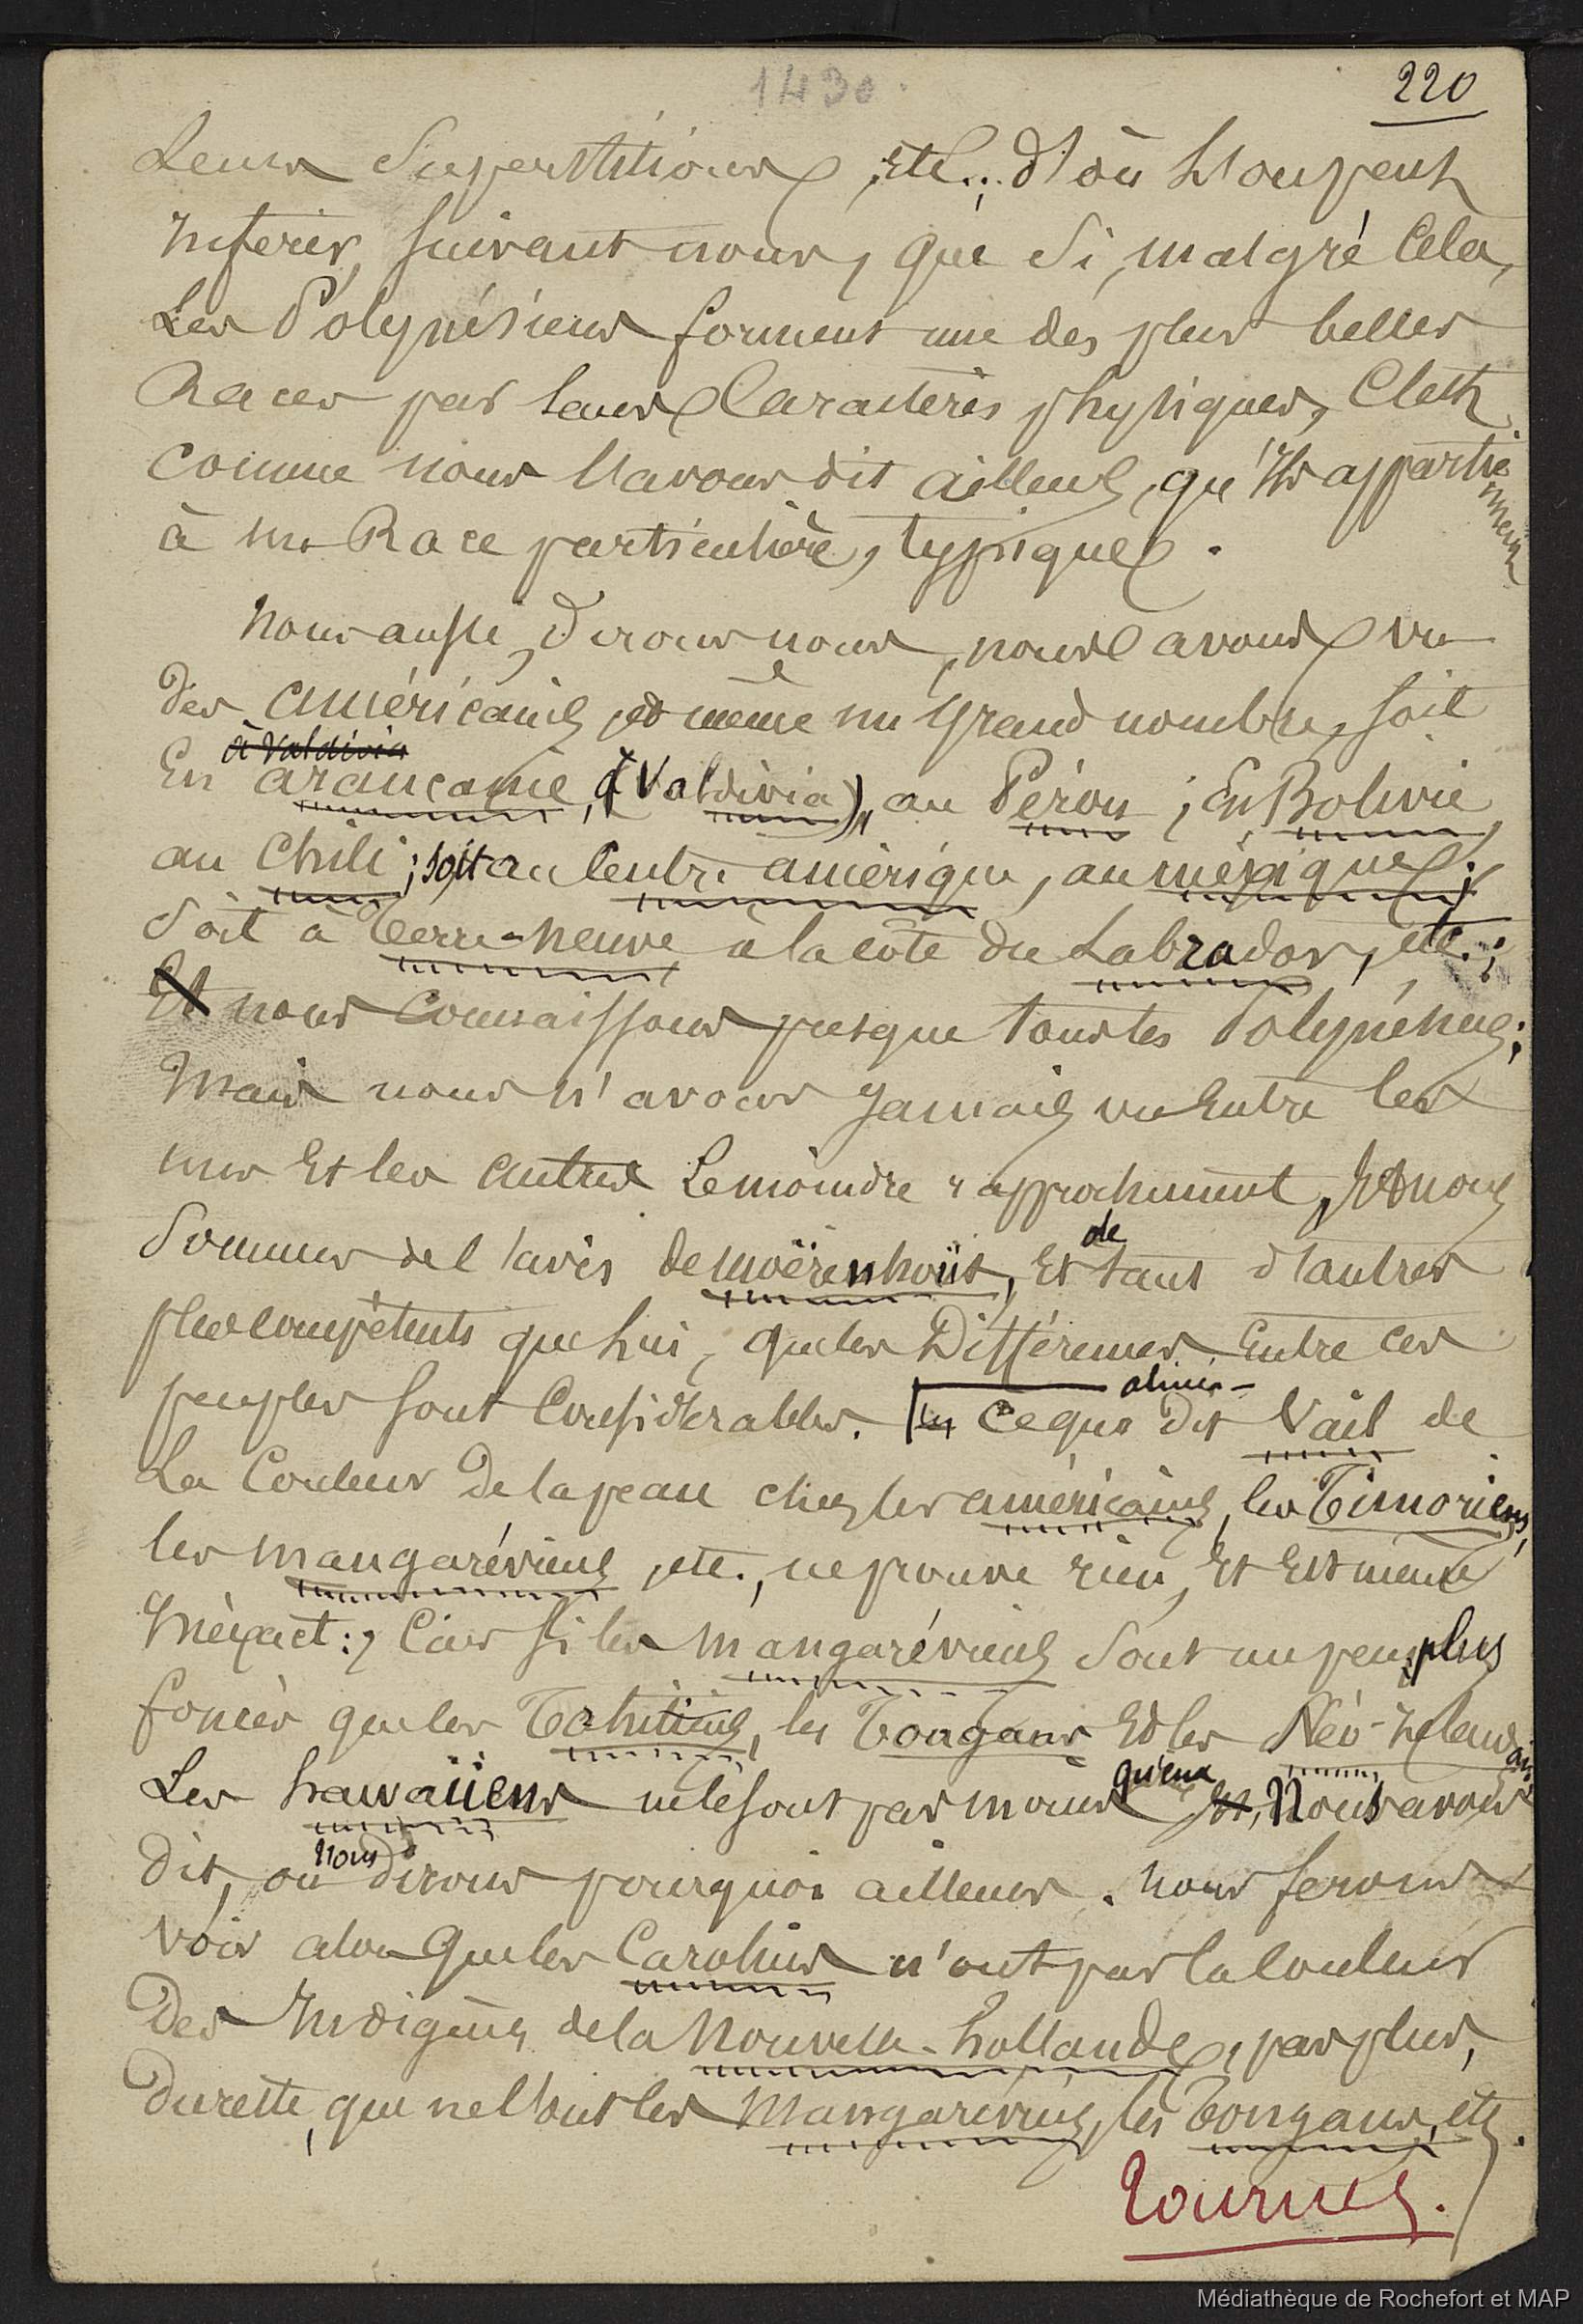 1430.
220
Leurs Superstitions, etc... d'où l'on peut
inférer, suivant nous, que si, malgré cela,
Les Polynésiens forment une des plus belles
Races par leurs Caractères physiques, C'est,
comme nous l'avons dit ailleurs, qu'ils appartiennent
à une Race particulière, typique.
Nous aussi, dirons nous, nous avons vu
des américains, et même un grand nombre, soit
à Valdivia
En araucanie, (Valdivia), au Pérou ; En Bolivie,
au Chili ; soit au Centre amérique, au mexique ;
Soit à Terre-neuve, à la côte du Labrador, etc. ;
Et nous connaissons presque tous les Polynésiens ;
Mais nous n'avons jamais vu entre les
uns Et les autres Le moindre rapprochement, Et nous
Sommes de l'avis de moërenhoüt, Et de tant d'autres
plus compétents que lui, que les Différences Entre ces
peuples sont Considérables. alinéa-
Ce que dit Vail de
La Couleur De la peau chez les américains, les Timoriens,
les mangaréviens, etc., ne prouve rien, Et Est même
Inéxact : Car si les mangaréviens Sont un peu plus
foncés que les Tahitiens, les Tongans Et les Néo-zélandais
Les hawaiiens ne le sont pas moins qu'eux Et, Nous avons
dit, ou nous dirons pourquoi ailleurs. Nous ferons
voir alors que les Carolins n'ont pas la Couleur
Des Indigènes de la Nouvelle-hollande, pas plus,
Du reste, que ne l'ont les Mangaréviens, les Tongans, etc.
Tournez.
Médiathèque de Rochefort et MAP